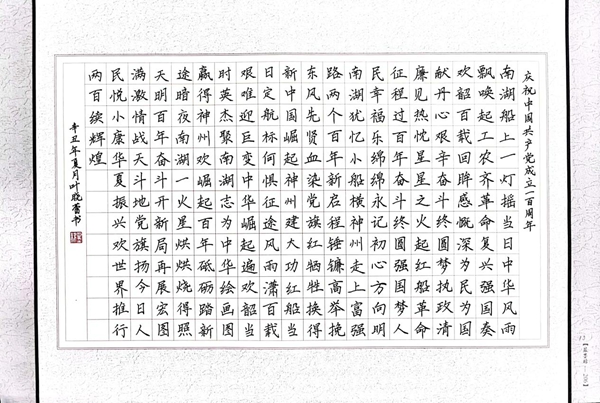 庆祝中国共产党成立一百周年
南湖船上一灯摇当日中华风雨
飘唤起工农齐革命复兴强国奏
欢韶百载回眸感慨深为民为国
献丹心艰辛奋斗终圆梦执政清
廉见热忱星星之火起红船革命
征程过百年奋斗终圆强国梦人
民幸福乐绵绵永记初心方向明
南湖犹忆小船横神州走上富强
路两个百年新启程锤镰高举挽
东风先贤血染党旗红牺牲换得
新中国崛起神州建大功红船当
日定航标何惧征途风雨潇百载
艰难迎巨变中华崛起遍欢韶当
时英杰聚南湖志为中华绘画图
赢得神州欢崛起百年砥砺踏新
途暗夜南湖一火星烘烘烧得照
天明百年奋斗开新局再展宏图
满激情战天斗地党旗扬今日人
民悦小康华夏振兴欢世界推行
两百续辉煌
辛丑年夏月叶晓蕾书